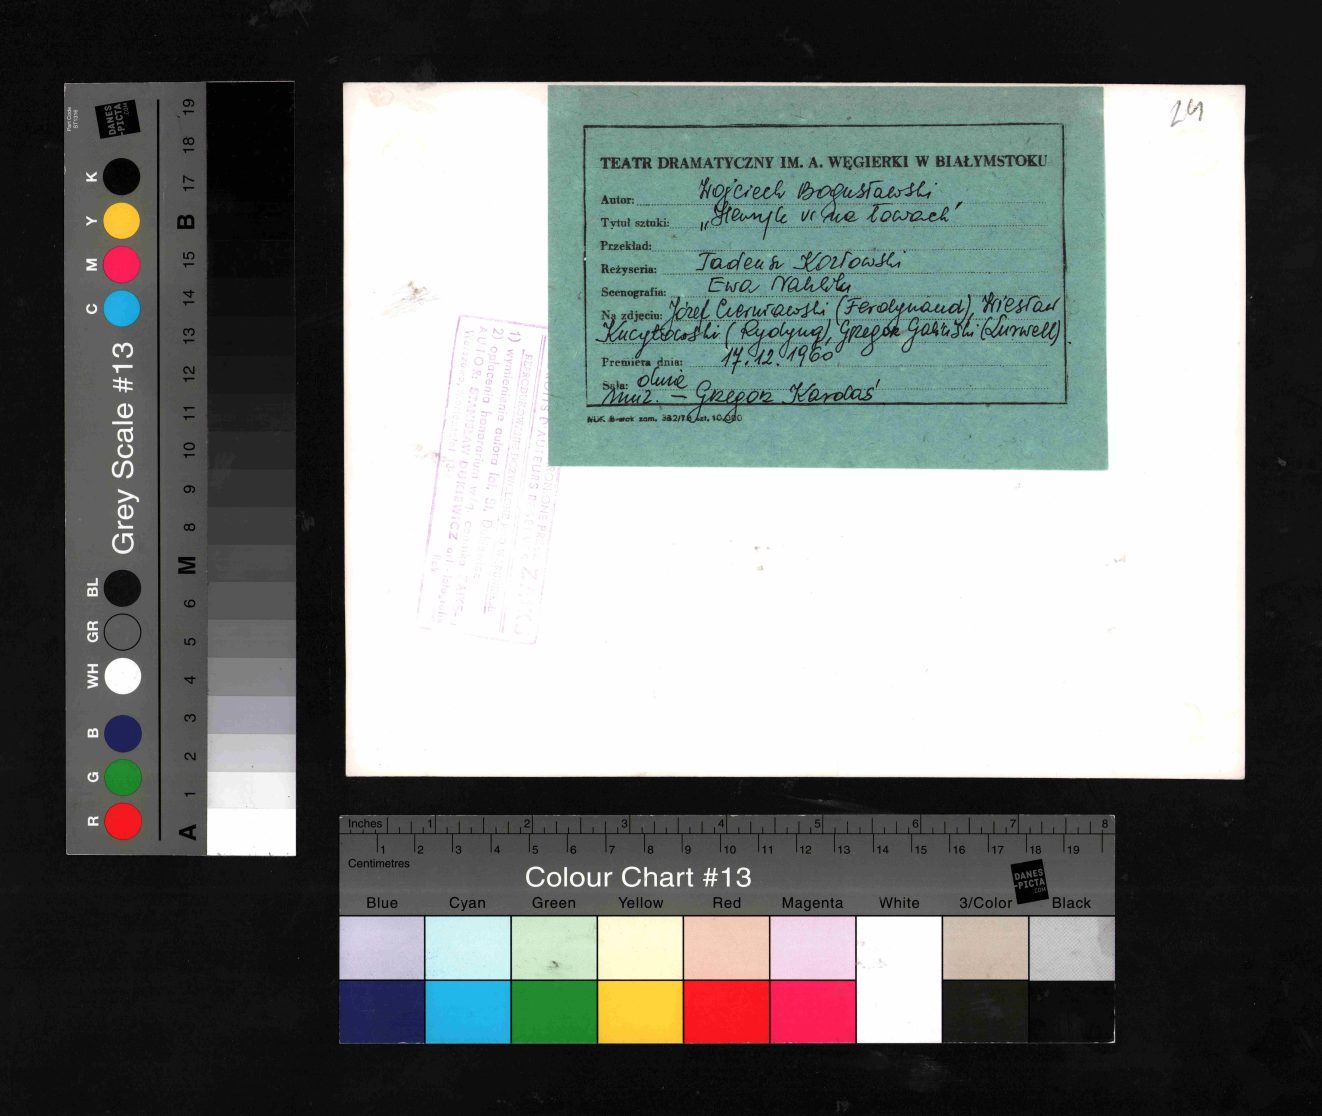 24
TEATR DRAMATYCZNY IM. A. WĘGIERKI W BIAŁYMSTOKU
Autor: Wojciech Bogusławski
Tytuł sztuki: „Henryk VI na łowach"
Przekład:
Reżyseria: Tadeusz Kozłowski
Scenografia: Ewa Nahlik
Na zdjęciu: Józef Czerniawski (Ferdynand), Wiesław
(Rydyng), Grzegorz Galiński (Lurwell)
Premiera dnia: 17.12.1960
Sala: duża
muz. – Grzegorz Kardaś
zam. 332/78 szt. 10.000
1) wymienienie autora fot. St.
2) opłacenia honorarium
AUTOR: STANISŁAW DUKIEWICZ art. fotografik
Part Code
ST1316
DANES
-PICTA
.COM
Grey Scale #13
R G B WH GR BL C M Y K
A 1 2 3 4 5 6 M 8 9 10 11 12 13 14 15 B 17 18 19
Inches 1 2 3 4 5 6 7 8
Centimetres 1 2 3 4 5 6 7 8 9 10 11 12 13 14 15 16 17 18 19
Colour Chart #13
DANES
-PICTA
.COM
Blue Cyan Green Yellow Red Magenta White 3/Color Black